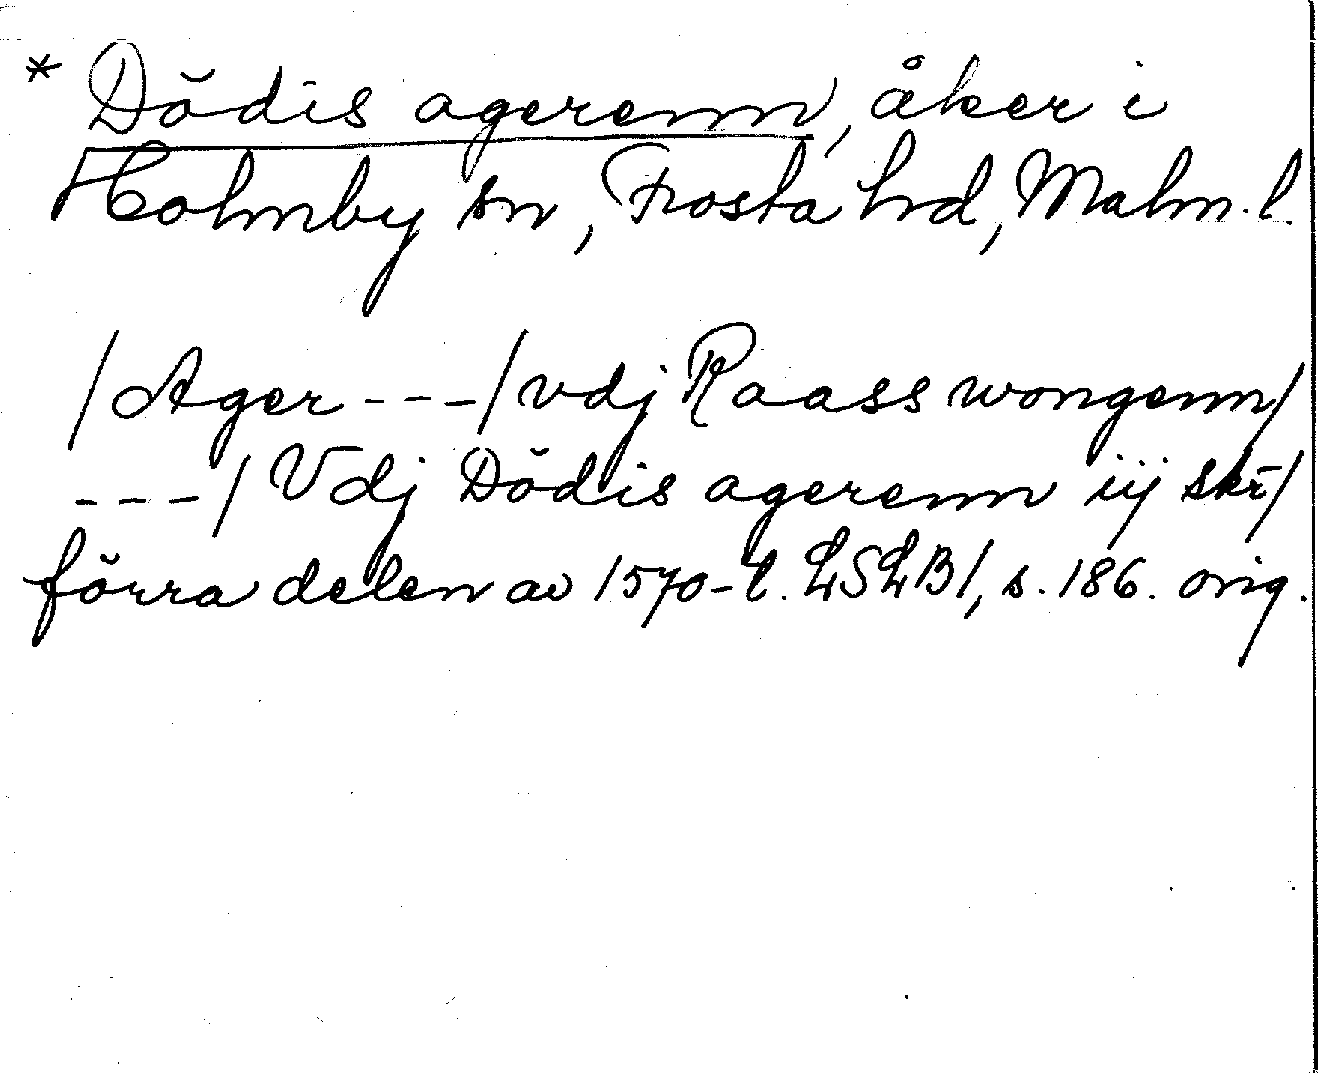 * Dödis agerenn, åker i
Holmby sn, Frosta hd, Malm. l.
/Ager - - -/ vdj Raass wongenn/
- - -/ Vdj Dödis agerenn iij skr̄/
förra delen av 1570-t. LSLB1, s. 186. orig.